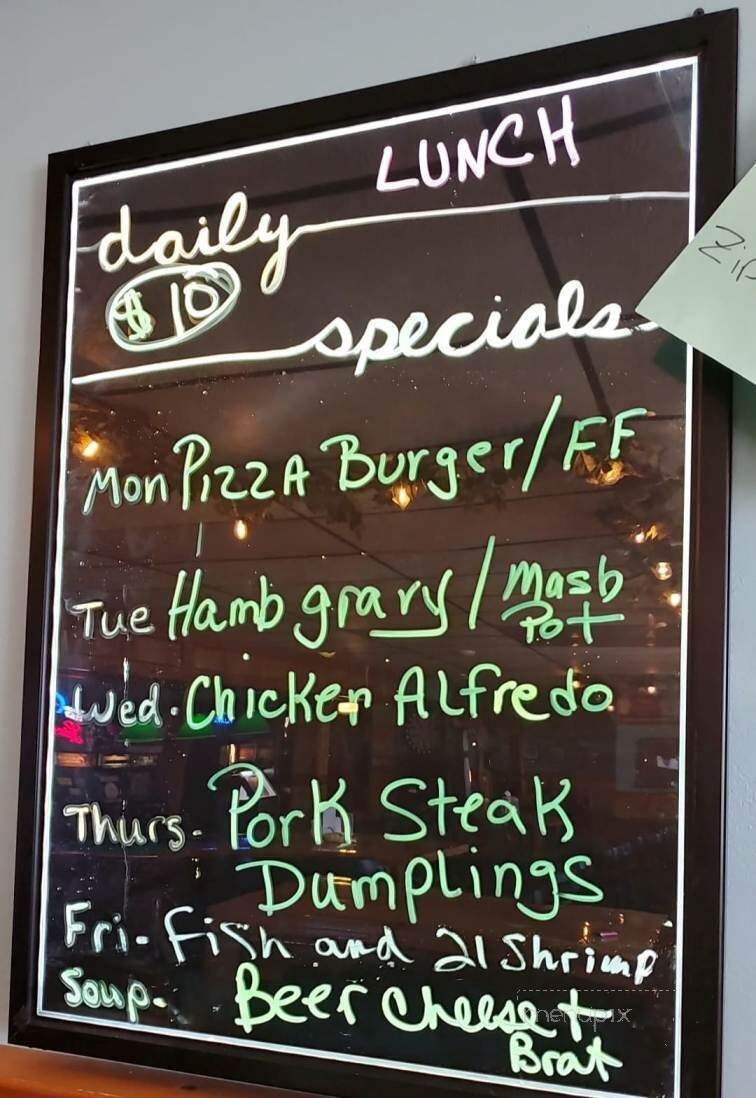 LUNCH
daily
$10
specials
Mon Pizza Burger/FF
Tue Hamb gravy / Mash
Pot
Wed. Chicken Alfredo
Thurs. Pork Steak
Dumplings
Fri- Fish and 21 Shrimp
Soup- Beer Cheese +
Brat
Zip
menupix